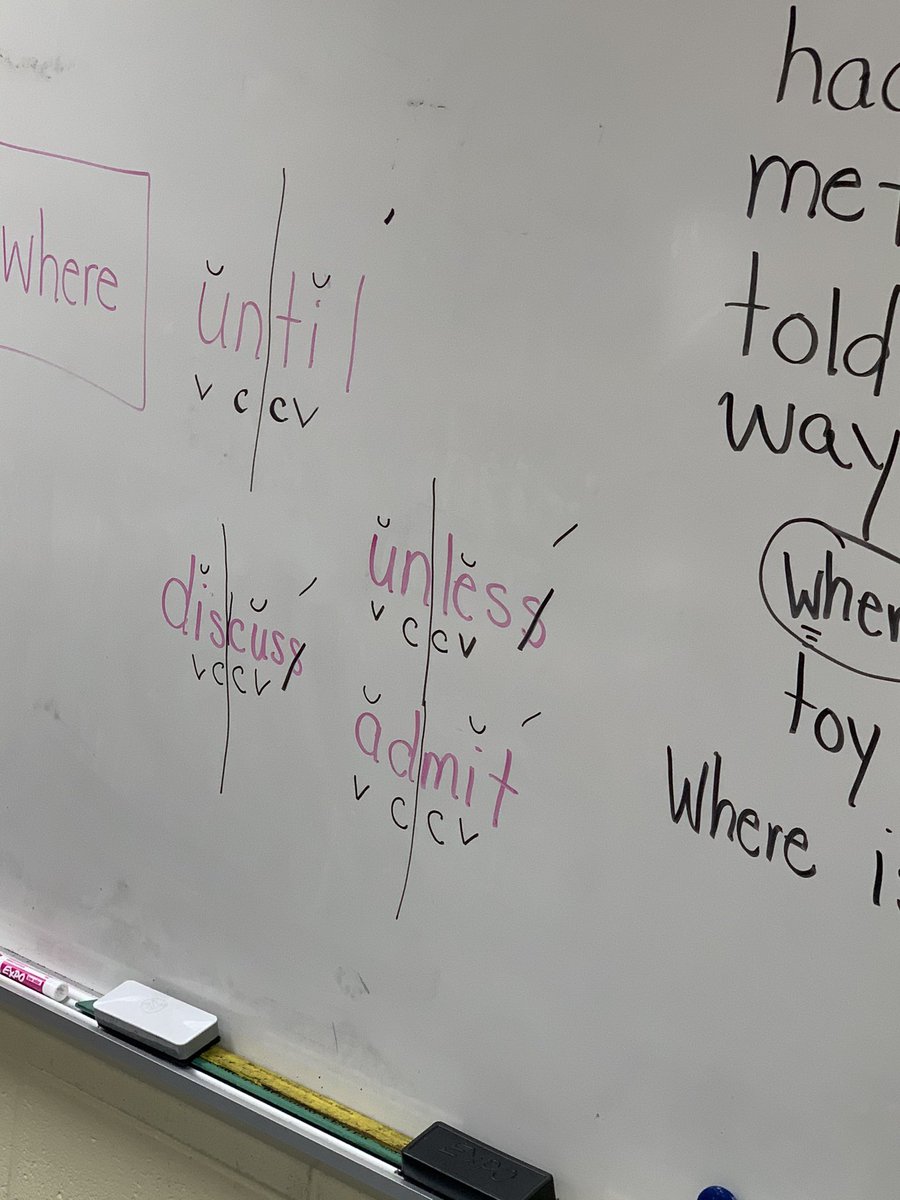 where
ŭntĭl ′
v c cv
dĭscŭss ′
vccv
ŭnlĕss ′
v c cv
ădmĭt ′
v c cv
told
way
toy
Where
EXPO
EXPO